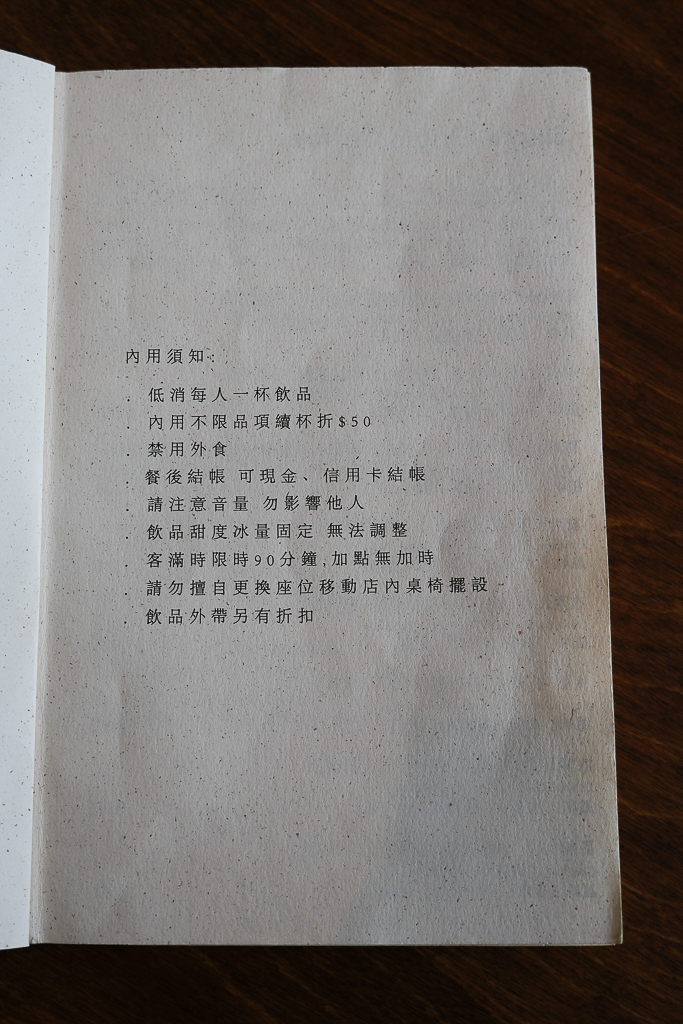 內用須知:
. 低消每人一杯飲品
. 內用不限品項續杯折$50
. 禁用外食
. 餐後結帳 可現金、信用卡結帳
. 請注意音量 勿影響他人
. 飲品甜度冰量固定 無法調整
. 客滿時限時90分鐘,加點無加時
. 請勿擅自更換座位移動店內桌椅擺設
. 飲品外帶另有折扣